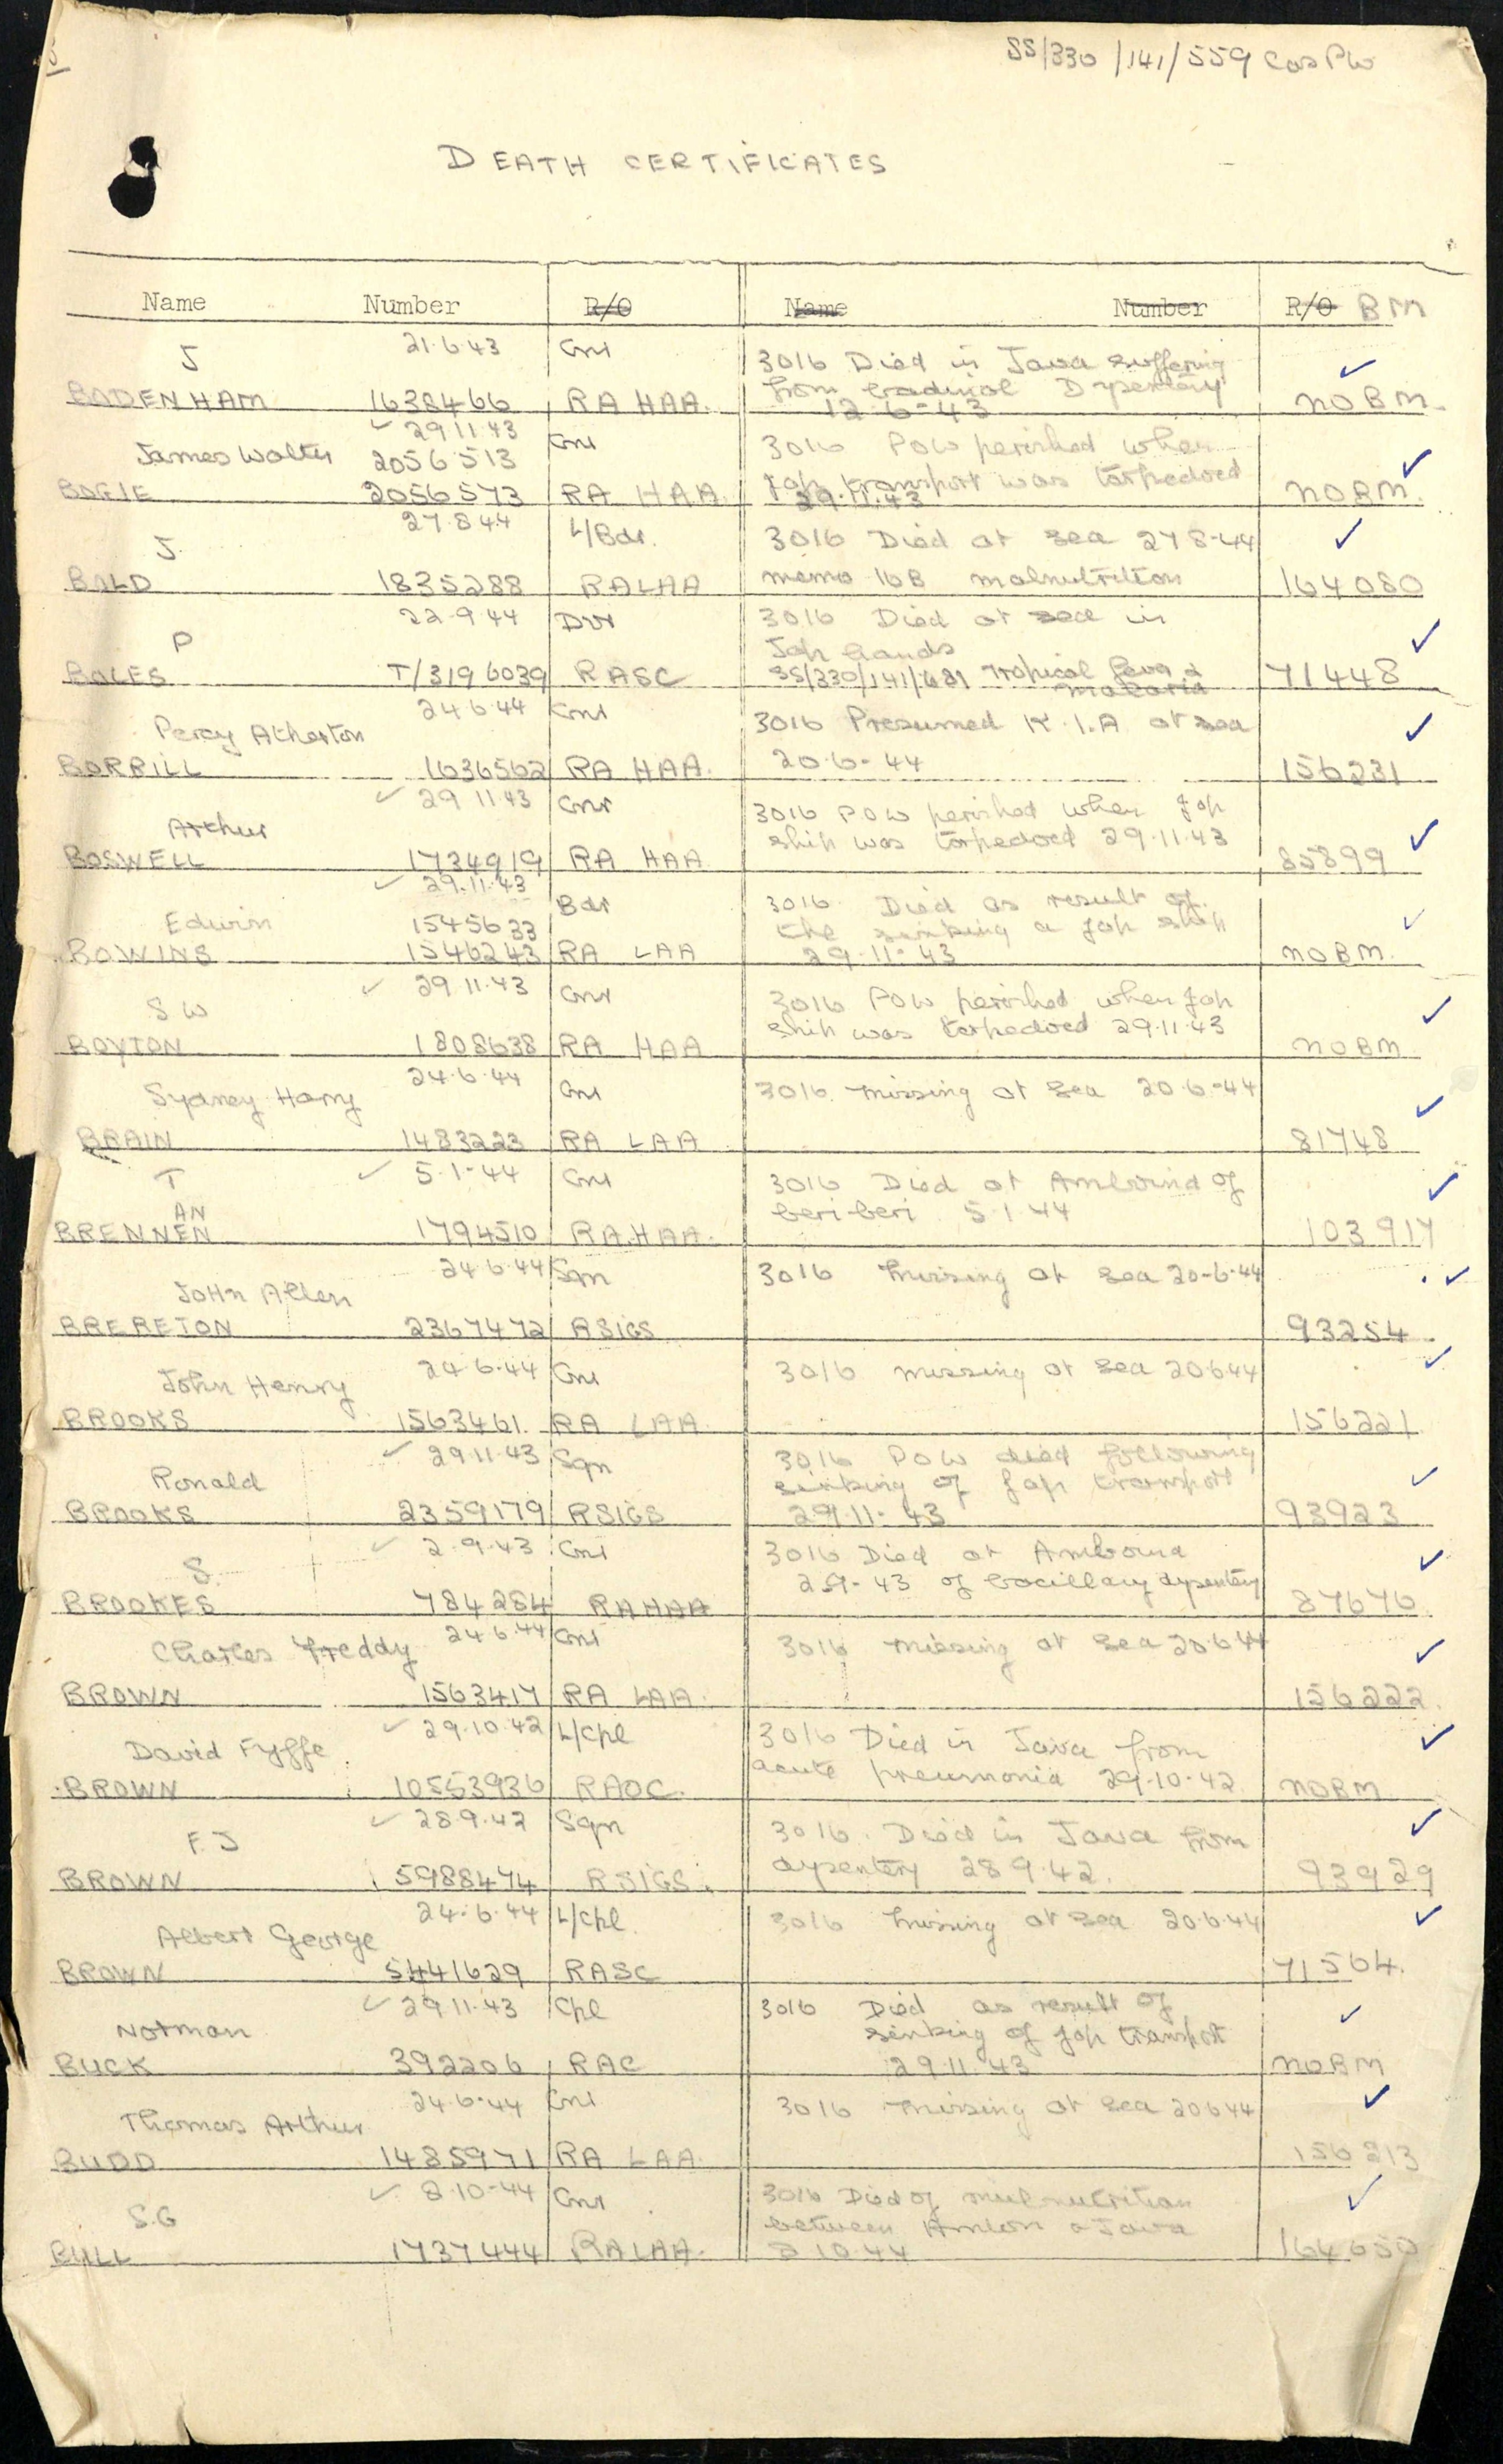 SS/330/141/559 Cas PW
DEATH CERTIFICATES
Name Number R/O Name Number R/O BM
J 21.6.43 Gnr 3016 Died in Java suffering
from Dysentery
BADENHAM 1638466 RA HAA. 12-6-43 NO BM.
29.11.43 Gnr 3016 POW perished when
James Walter 2056513 Jap transport was torpedoed
BOGIE 2056573 RA HAA. 29.11.43 NO BM.
J. 27.8.44 L/Bdr. 3016 Died at sea 27 8-44
BOLD 1835288 RA LAA memo 16B malnutrition 164080
P 22.9.44 Dvr 3016 Died at sea in
Jap hands
BOLES T/3196039 RASC SS/330/141/681 tropical fever &
malaria 71448
Percy Atherton 24.6.44 Gnr 3016 Presumed K.I.A at sea
BORRILL 1636562 RA HAA. 20-6-44 156231
Arthur 29 11.43 Gnr 3016 POW perished when Jap
ship was torpedoed 29.11.43
BOSWELL 1734919 RA HAA 85899
29.11.43 Bdr 3016 Died as result of
Edwin 1545633 the sinking a Jap ship
BOWINS 1546243 RA LAA 29-11-43 NO BM.
S W 29 11.43 Gnr 3016 POW perished when Jap
ship was torpedoed 29.11.43
BOYTON 1808638 RA HAA NO BM
Sydney Harry 24.6.44 Gnr 3016 missing at sea 20.6-44
BRAIN 1483223 RA LAA 81748
T 5.1-44 Gnr 3016 Died at Amboina of
AN beri-beri 5 1 44
BRENNEN 1794510 RA.HAA. 103917
John Allen 24.6.44 Sgn 3016 missing at sea 20-6-44
BRERETON 2367472 RSIGS 93254
John Henry 24.6.44 Gnr 3016 missing at sea 20.6.44
BROOKS 1563461. RA LAA. 156221
Ronald 29.11.43 Sgn 3016 POW died following
sinking of Jap transport
BROOKS 2359179 RSIGS 29.11-43 93923
S. 2.9.43 Gnr 3016 Died at Amboina
2.9-43 of bacillary dysentery
BROOKES 784284 RA HAA 87676
Charles Freddy 24.6.44 Gnr 3016 missing at sea 20.6.44
BROWN 1563417 RA LAA. 156222.
David Fyffe 29.10.42 L/Cpl 3016 Died in Java from
acute pneumonia 29-10-42
BROWN 10553936 RAOC. NO BM
F. J 28.9.42 Sgn 3016. Died in Java from
dysentery 28 9.42.
BROWN 5988474 RSIGS. 93929
Albert George 24.6.44 L/Cpl. 3016 missing at sea 20.6.44
BROWN 5441629 RASC 71564.
Norman 29 11.43 Cpl 3016 Died as result of
sinking of Jap transport
BUCK 392206 RAC 29.11.43 NO BM
Thomas Arthur 24.6.44 Gnr 3016 missing at sea 20 6 44
BUDD 1485971 RA LAA. 156213
S.G 8.10-44 Gnr 3016 Died of malnutrition
between Ambon & Java
BULL 1737444 RA LAA. 8 10.44